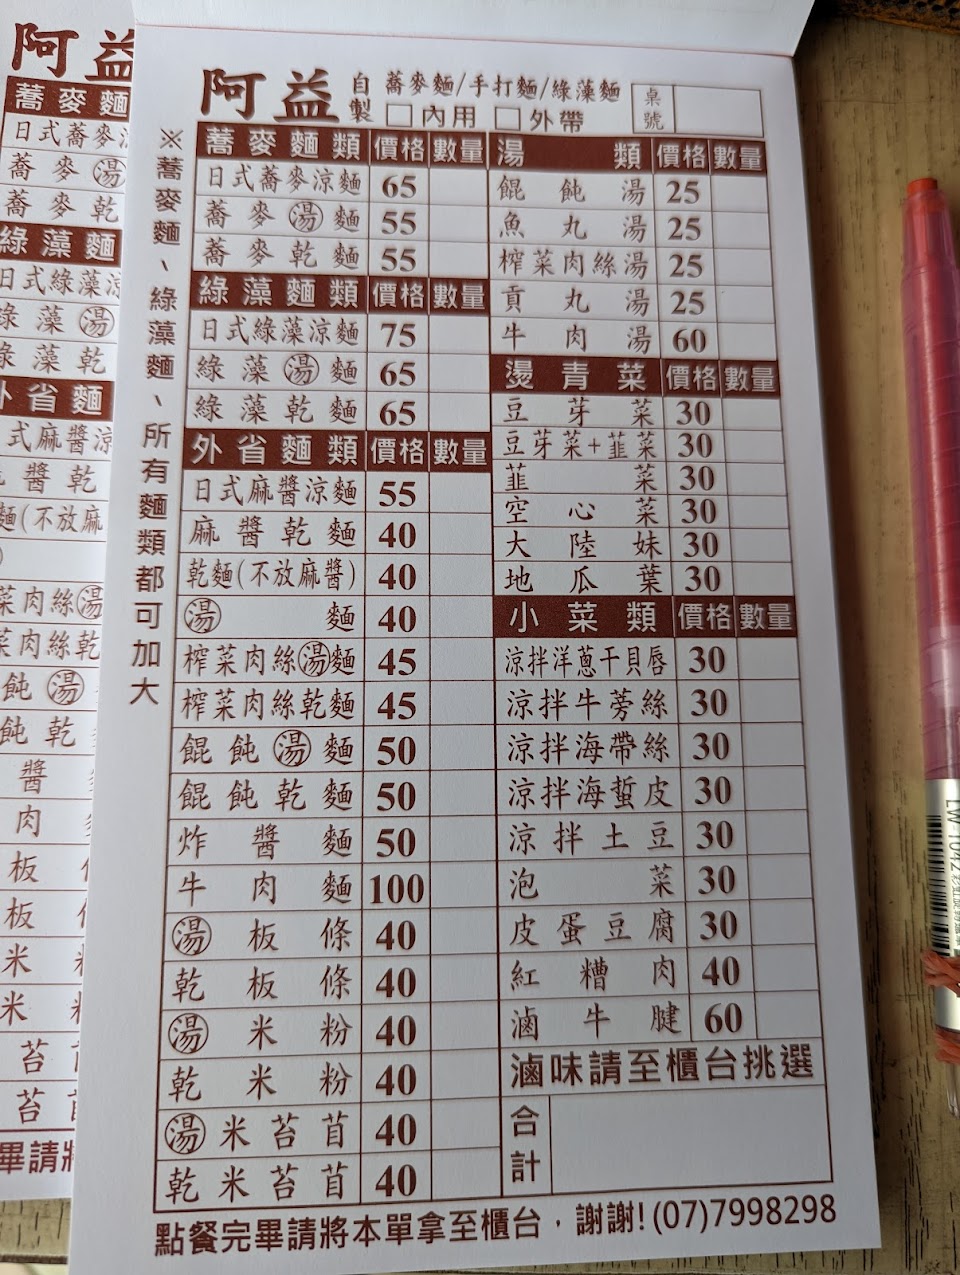 阿益 自製 蕎麥麵/手打麵/綠藻麵
□內用 □外帶
桌號
※蕎麥麵、綠藻麵、所有麵類都可加大
蕎麥麵類 價格 數量
日式蕎麥涼麵 65
蕎麥湯麵 55
蕎麥乾麵 55
綠藻麵類 價格 數量
日式綠藻涼麵 75
綠藻湯麵 65
綠藻乾麵 65
外省麵類 價格 數量
日式麻醬涼麵 55
麻醬乾麵 40
乾麵(不放麻醬) 40
湯麵 40
榨菜肉絲湯麵 45
榨菜肉絲乾麵 45
餛飩湯麵 50
餛飩乾麵 50
炸醬麵 50
牛肉麵 100
湯板條 40
乾板條 40
湯米粉 40
乾米粉 40
湯米苔苜 40
乾米苔苜 40
湯類 價格 數量
餛飩湯 25
魚丸湯 25
榨菜肉絲湯 25
貢丸湯 25
牛肉湯 60
燙青菜 價格 數量
豆芽菜 30
豆芽菜+韮菜 30
韮菜 30
空心菜 30
大陸妹 30
地瓜葉 30
小菜類 價格 數量
涼拌洋蔥干貝唇 30
涼拌牛蒡絲 30
涼拌海帶絲 30
涼拌海蜇皮 30
涼拌土豆 30
泡菜 30
皮蛋豆腐 30
紅糟肉 40
滷牛腱 60
滷味請至櫃台挑選
合計
點餐完畢請將本單拿至櫃台，謝謝! (07)7998298